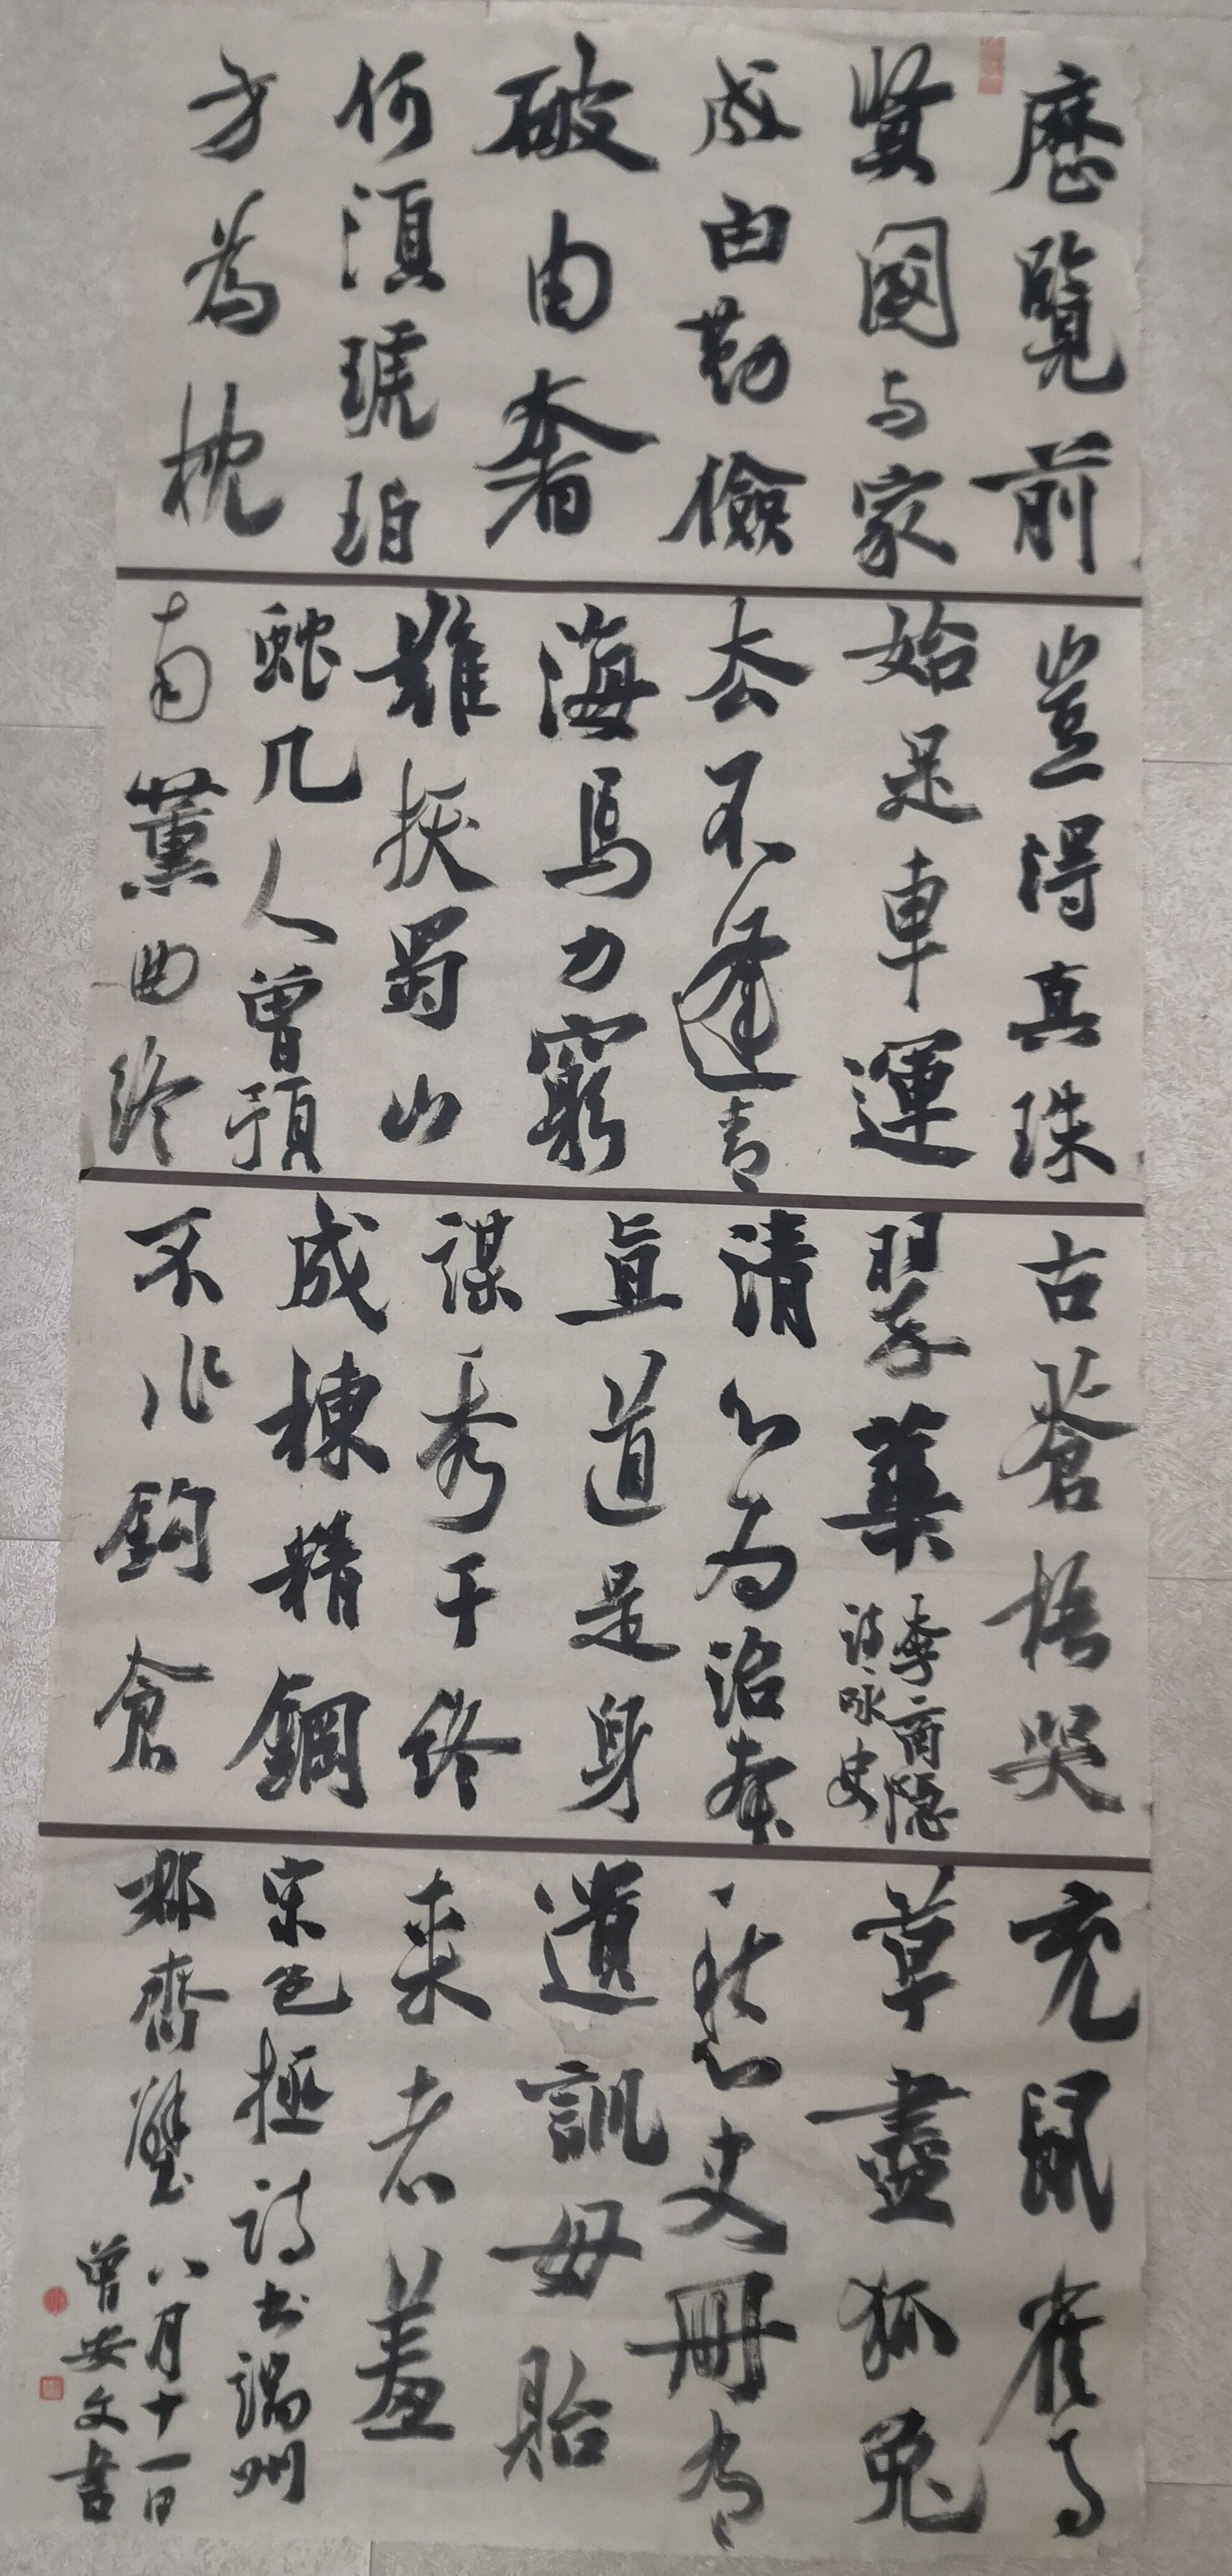 歷覽前
賢國与家
成由勤儉
破由奢
何須琥珀
方為枕
豈得真珠
始是車運
去不逢青
海馬力窮
難拔蜀山
蛇几人曾預
南薰曲終
古蒼梧哭
翠華
李商隱
詩咏史
清心为治本
直道是身
謀秀干終
成棟精鋼
不作鈎倉
充鼠雀喜
草盡狐兔
愁史冊有
遺訓毋貽
來者羞
宋包拯詩书端州
郡齋壁
八月十一日
曾安文書